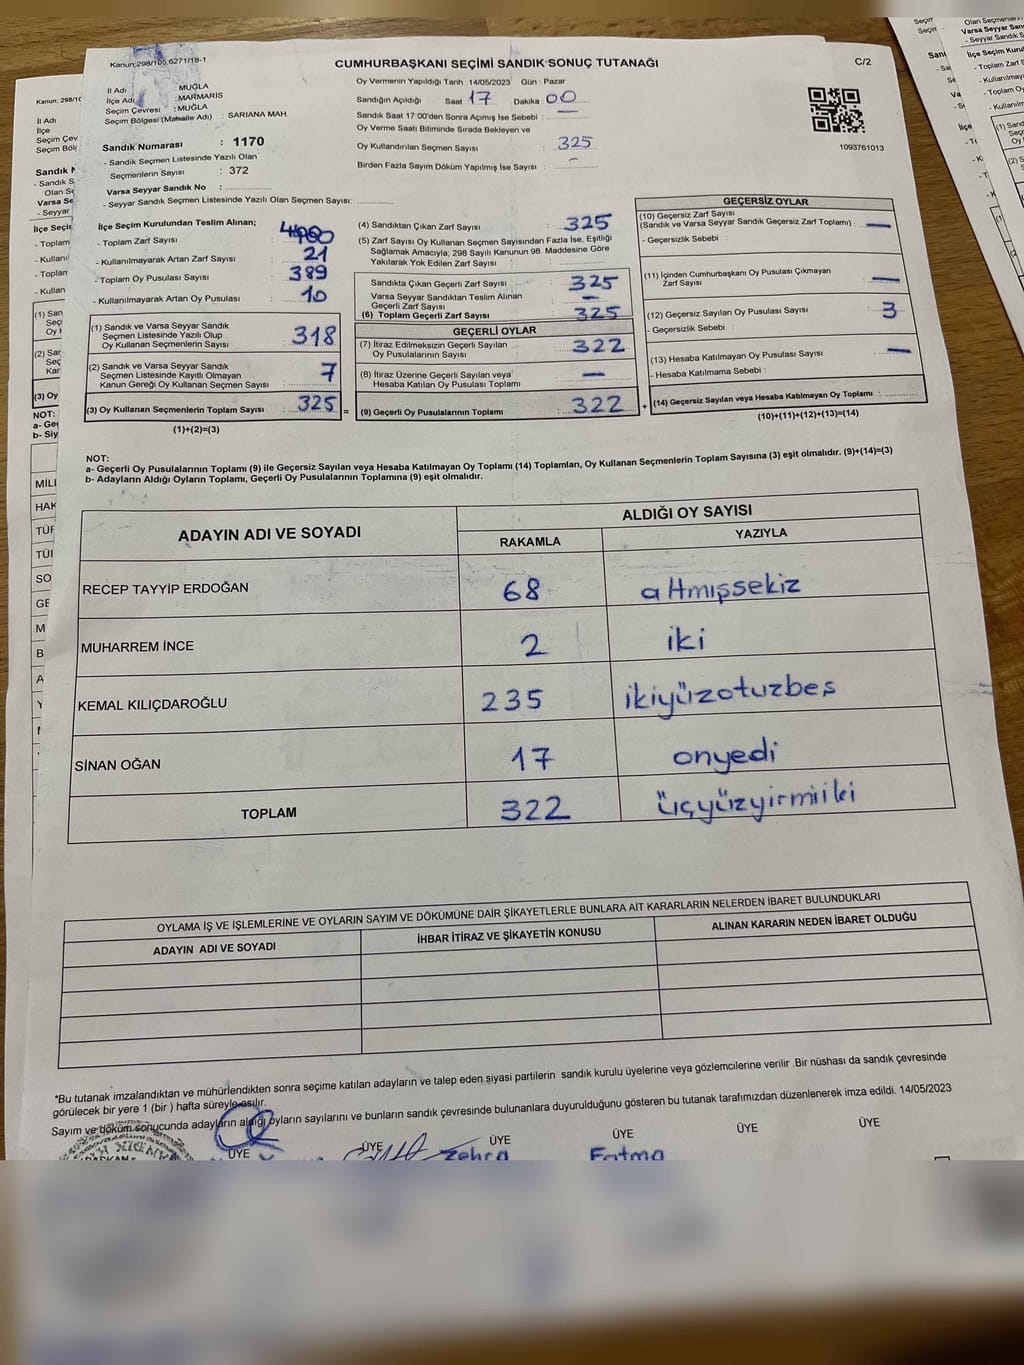 Kanun:298/105,6271/18-1
CUMHURBAŞKANI SEÇİMİ SANDIK SONUÇ TUTANAĞI
C/2
İl Adı : MUĞLA
İlçe Adı : MARMARİS
Seçim Çevresi : MUĞLA
Seçim Bölgesi (Mahalle Adı) : SARIANA MAH.
Sandık Numarası : 1170
- Sandık Seçmen Listesinde Yazılı Olan
Seçmenlerin Sayısı : 372
Varsa Seyyar Sandık No :
- Seyyar Sandık Seçmen Listesinde Yazılı Olan Seçmen Sayısı:
Oy Vermenin Yapıldığı Tarih :14/05/2023 Gün : Pazar
Sandığın Açıldığı Saat 17 Dakika 00
Sandık Saat 17:00'den Sonra Açımış İse Sebebi : —
Oy Verme Saati Bitiminde Sırada Bekleyen ve
Oy Kullandırılan Seçmen Sayısı : 325
Birden Fazla Sayım Döküm Yapılmış İse Sayısı : -
1093761013
İlçe Seçim Kurulundan Teslim Alınan;
- Toplam Zarf Sayısı
- Kullanılmayarak Artan Zarf Sayısı 21
- Toplam Oy Pusulası Sayısı 389
- Kullanılmayarak Artan Oy Pusulası 10
(1) Sandık ve Varsa Seyyar Sandık
Seçmen Listesinde Yazılı Olup
Oy Kullanan Seçmenlerin Sayısı 318
(2) Sandık ve Varsa Seyyar Sandık
Seçmen Listesinde Kayıtlı Olmayan
Kanun Gereği Oy Kullanan Seçmen Sayısı 7
(3) Oy Kullanan Seçmenlerin Toplam Sayısı 325 =
(1)+(2)=(3)
(4) Sandıktan Çıkan Zarf Sayısı : 325
(5) Zarf Sayısı Oy Kullanan Seçmen Sayısından Fazla İse, Eşitliği
Sağlamak Amacıyla; 298 Sayılı Kanunun 98. Maddesine Göre
Yakılarak Yok Edilen Zarf Sayısı
Sandıkta Çıkan Geçerli Zarf Sayısı : 325
Varsa Seyyar Sandıktan Teslim Alınan
Geçerli Zarf Sayısı —
(6) Toplam Geçerli Zarf Sayısı : 325
GEÇERLİ OYLAR
(7) İtiraz Edilmeksizin Geçerli Sayılan
Oy Pusulalarının Sayısı 322
(8) İtiraz Üzerine Geçerli Sayılan veya
Hesaba Katılan Oy Pusulası Toplamı —
(9) Geçerli Oy Pusulalarının Toplamı : 322 +
GEÇERSİZ OYLAR
(10) Geçersiz Zarf Sayısı
(Sandık ve Varsa Seyyar Sandık Geçersiz Zarf Toplamı) : —
- Geçersizlik Sebebi :
(11) İçinden Cumhurbaşkanı Oy Pusulası Çıkmayan
Zarf Sayısı : —
(12) Geçersiz Sayılan Oy Pusulası Sayısı : 3
- Geçersizlik Sebebi :
(13) Hesaba Katılmayan Oy Pusulası Sayısı : —
- Hesaba Katılmama Sebebi :
(14) Geçersiz Sayılan veya Hesaba Katılmayan Oy Toplamı :
(10)+(11)+(12)+(13)=(14)
NOT:
a- Geçerli Oy Pusulalarının Toplamı (9) ile Geçersiz Sayılan veya Hesaba Katılmayan Oy Toplamı (14) Toplamları, Oy Kullanan Seçmenlerin Toplam Sayısına (3) eşit olmalıdır. (9)+(14)=(3)
b- Adayların Aldığı Oyların Toplamı, Geçerli Oy Pusulalarının Toplamına (9) eşit olmalıdır.
ADAYIN ADI VE SOYADI
ALDIĞI OY SAYISI
RAKAMLA YAZIYLA
RECEP TAYYİP ERDOĞAN 68 altmışsekiz
MUHARREM İNCE 2 iki
KEMAL KILIÇDAROĞLU 235 ikiyüzotuzbeş
SİNAN OĞAN 17 onyedi
TOPLAM 322 üçyüzyirmiiki
OYLAMA İŞ VE İŞLEMLERİNE VE OYLARIN SAYIM VE DÖKÜMÜNE DAİR ŞİKAYETLERLE BUNLARA AİT KARARLARIN NELERDEN İBARET BULUNDUKLARI
ADAYIN ADI VE SOYADI İHBAR İTİRAZ VE ŞİKAYETİN KONUSU ALINAN KARARIN NEDEN İBARET OLDUĞU
*Bu tutanak imzalandıktan ve mühürlendikten sonra seçime katılan adayların ve talep eden siyasi partilerin sandık kurulu üyelerine veya gözlemcilerine verilir .Bir nüshası da sandık çevresinde
görülecek bir yere 1 (bir ) hafta süreyle asılır.
Sayım ve döküm sonucunda adayların aldığı oyların sayılarını ve bunların sandık çevresinde bulunanlara duyurulduğunu gösteren bu tutanak tarafımızdan düzenlenerek imza edildi. 14/05/2023
ÜYE ÜYE ÜYE ÜYE ÜYE ÜYE
Zehra Fatma